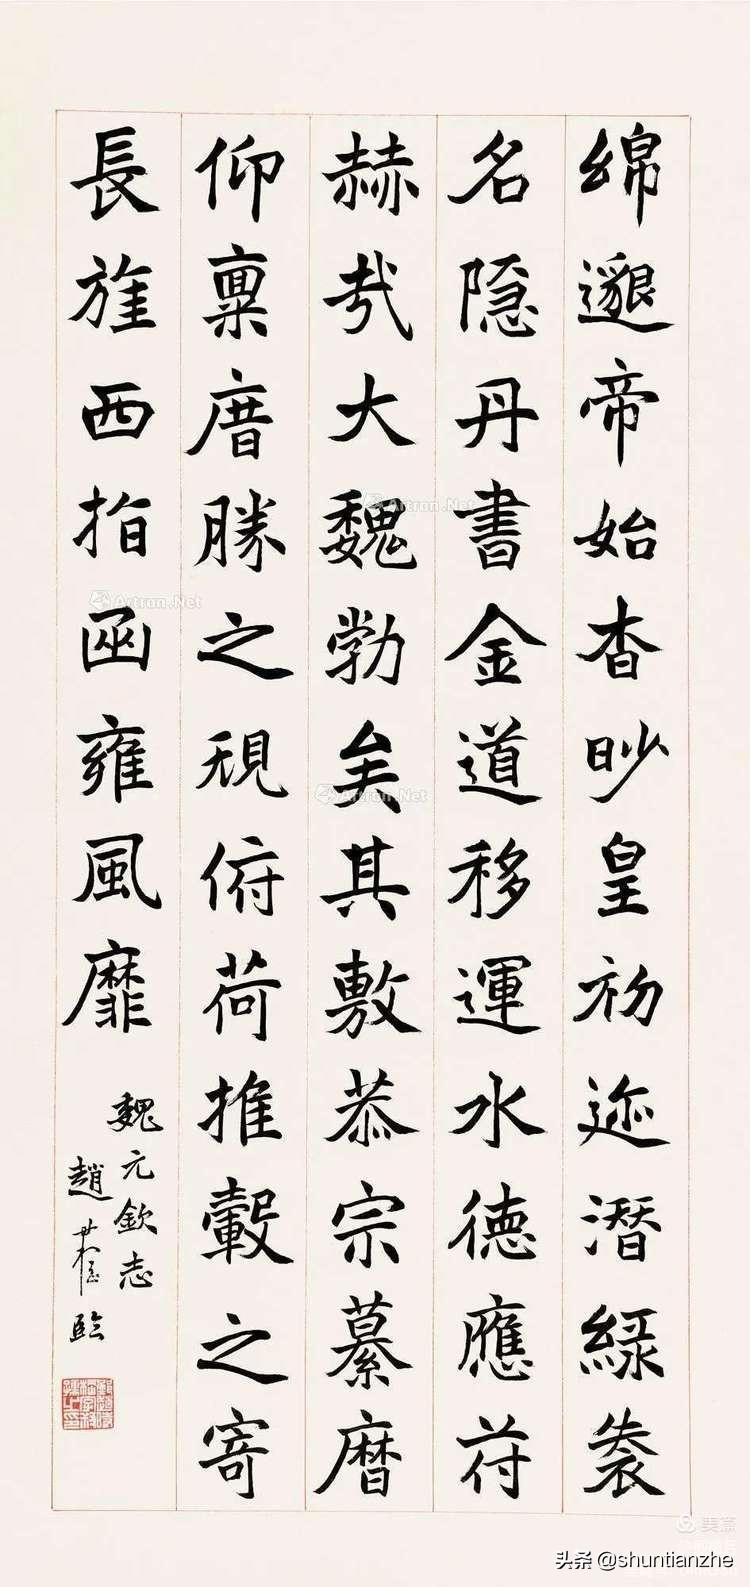 綿邈帝始杳眇皇初迹潜緑袠
名隐丹書金道移運水德應苻
赫哉大魏勃矣其敷恭宗纂曆
仰稟厝勝之規俯荷推轂之寄
長旌西指函雍風靡
魏元欽志
趙世臨
Artron.Net
Artron.Net
Artron.Net
美篇
头条 @shuntianzhe